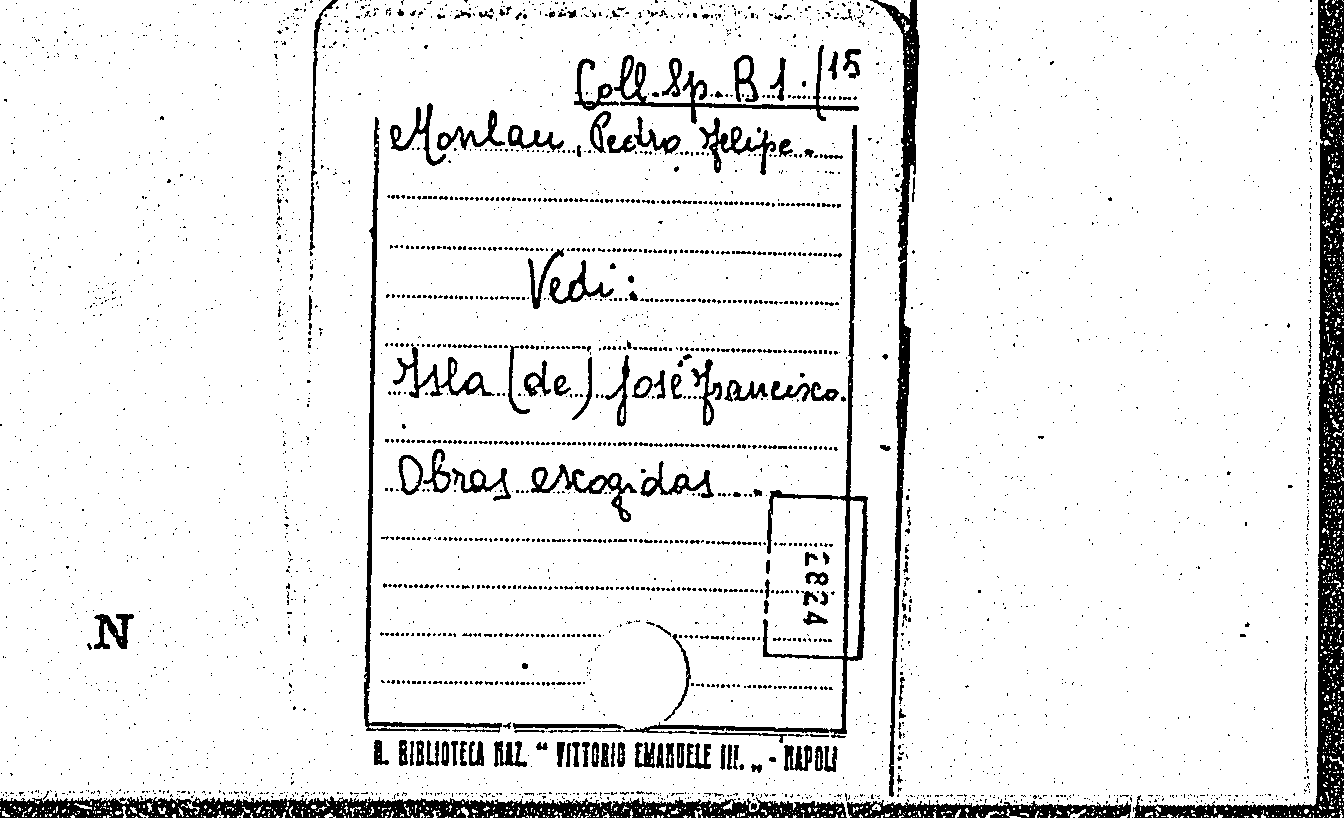 Coll. Sp. B 1. (15
Monlau, Pedro Felipe.
Vedi:
Isla (de) José Francisco.
Obras escogidas ...
2824
N
R. BIBLIOTECA NAZ. “ VITTORIO EMANUELE III. „ - NAPOLI